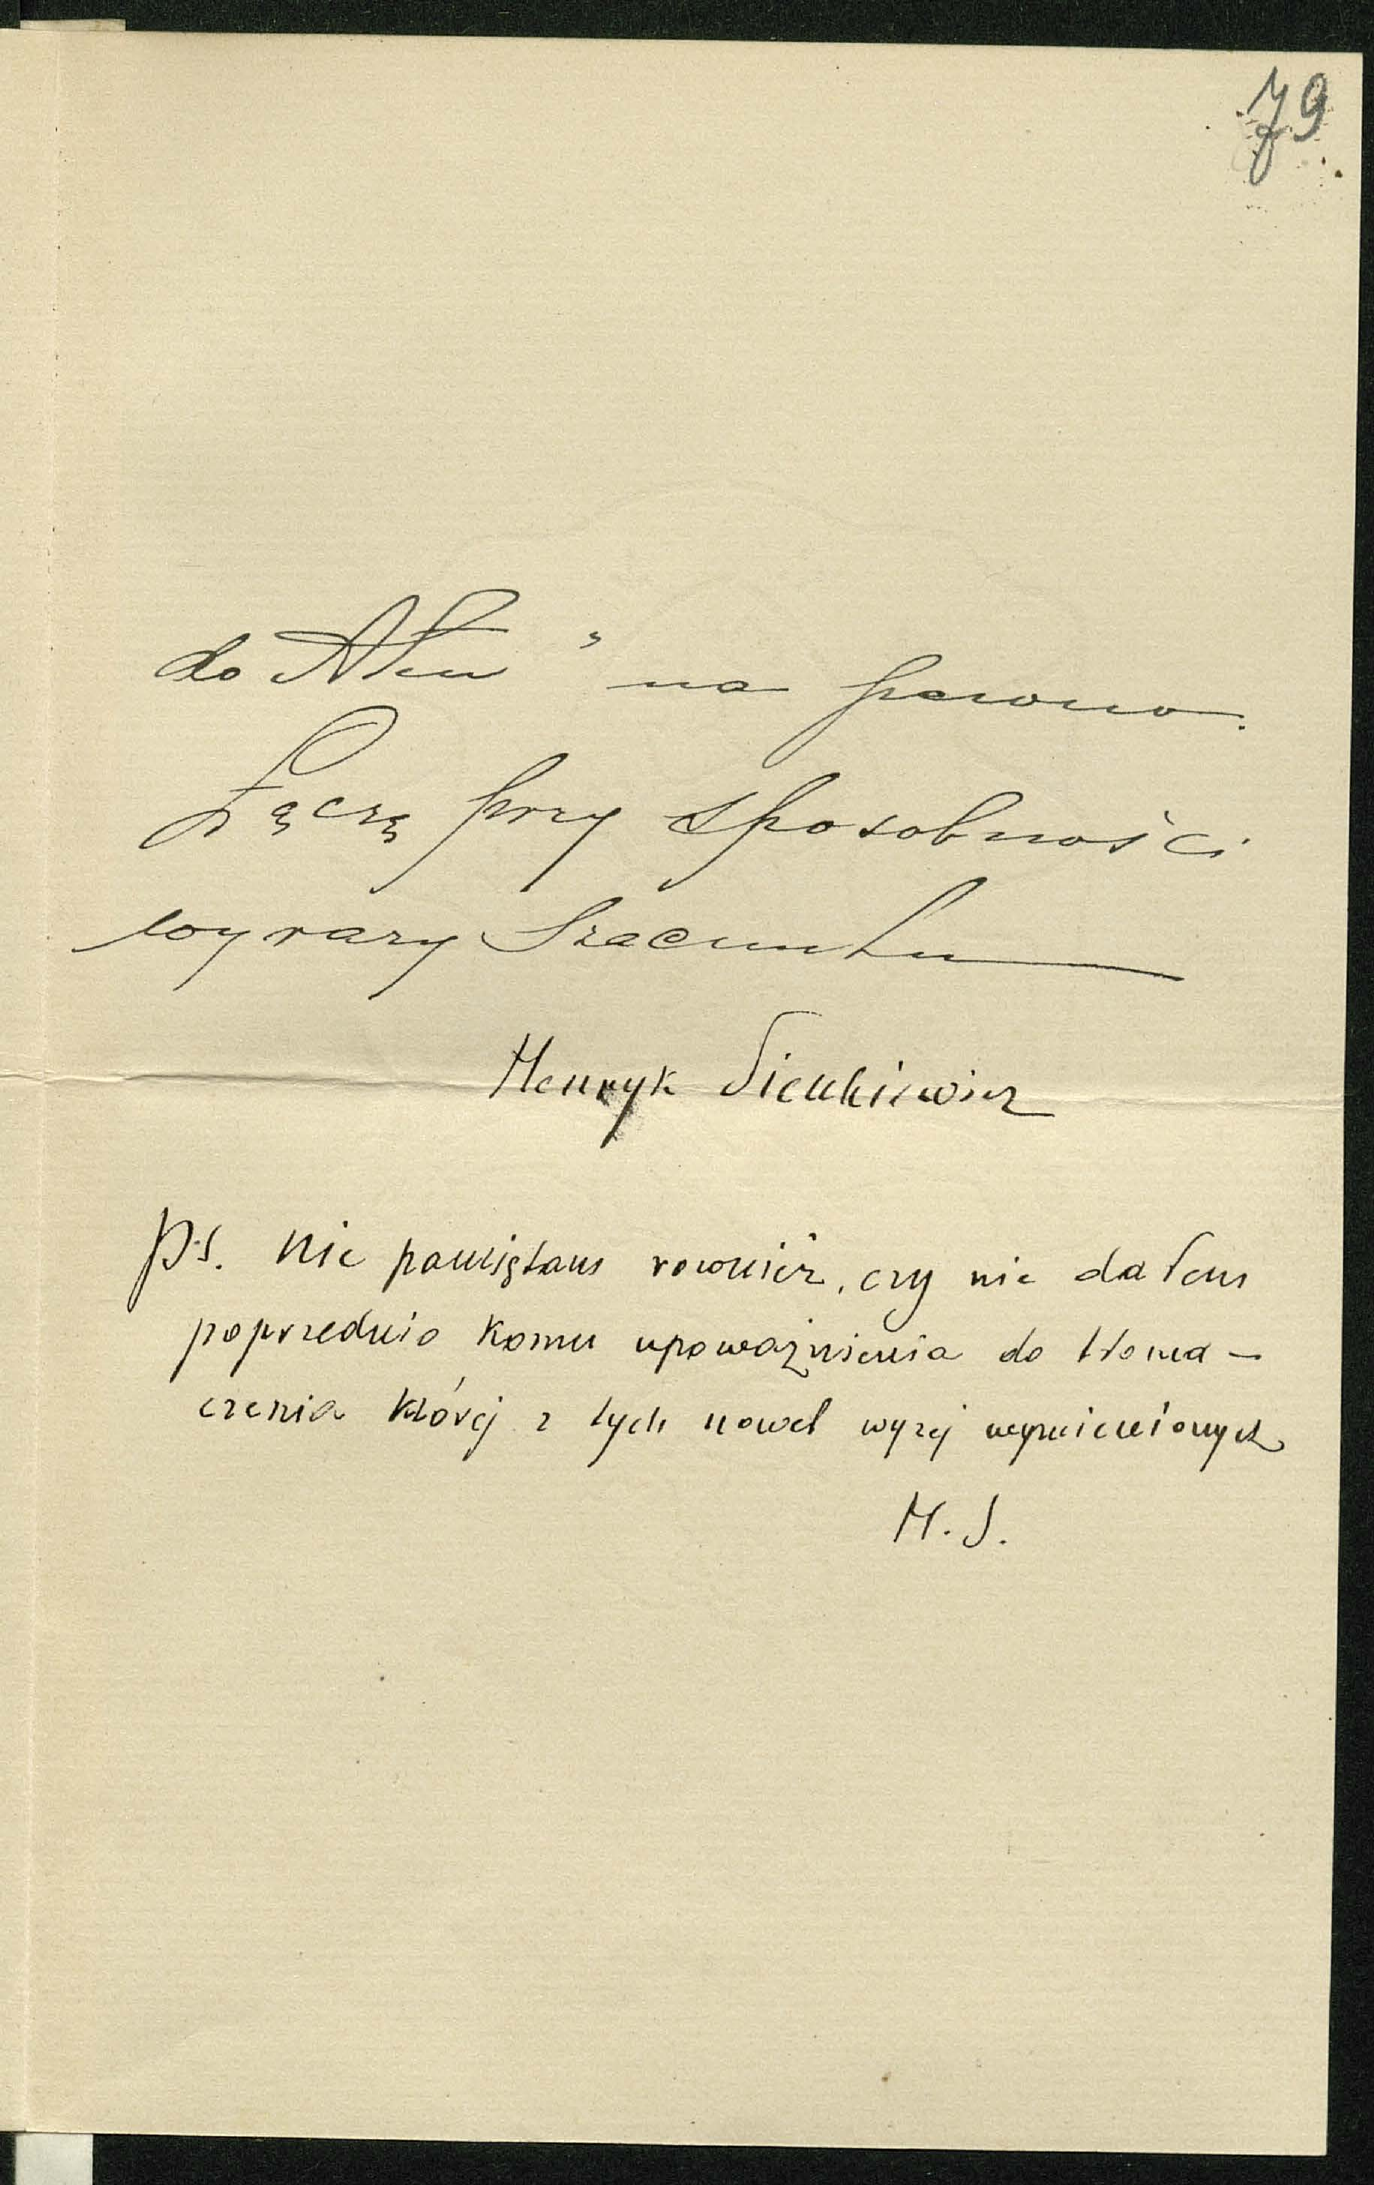 79
do Aten" na pewno.
Łączę przy sposobności
wyrazy Szacunku
Henryk Sienkiewicz
P.S. Nie pamiętam rownież, czy nie dałem
poprzednio komu upoważnienia do tłoma-
czenia której z tych nowel wyżej wymienionych
H. S.